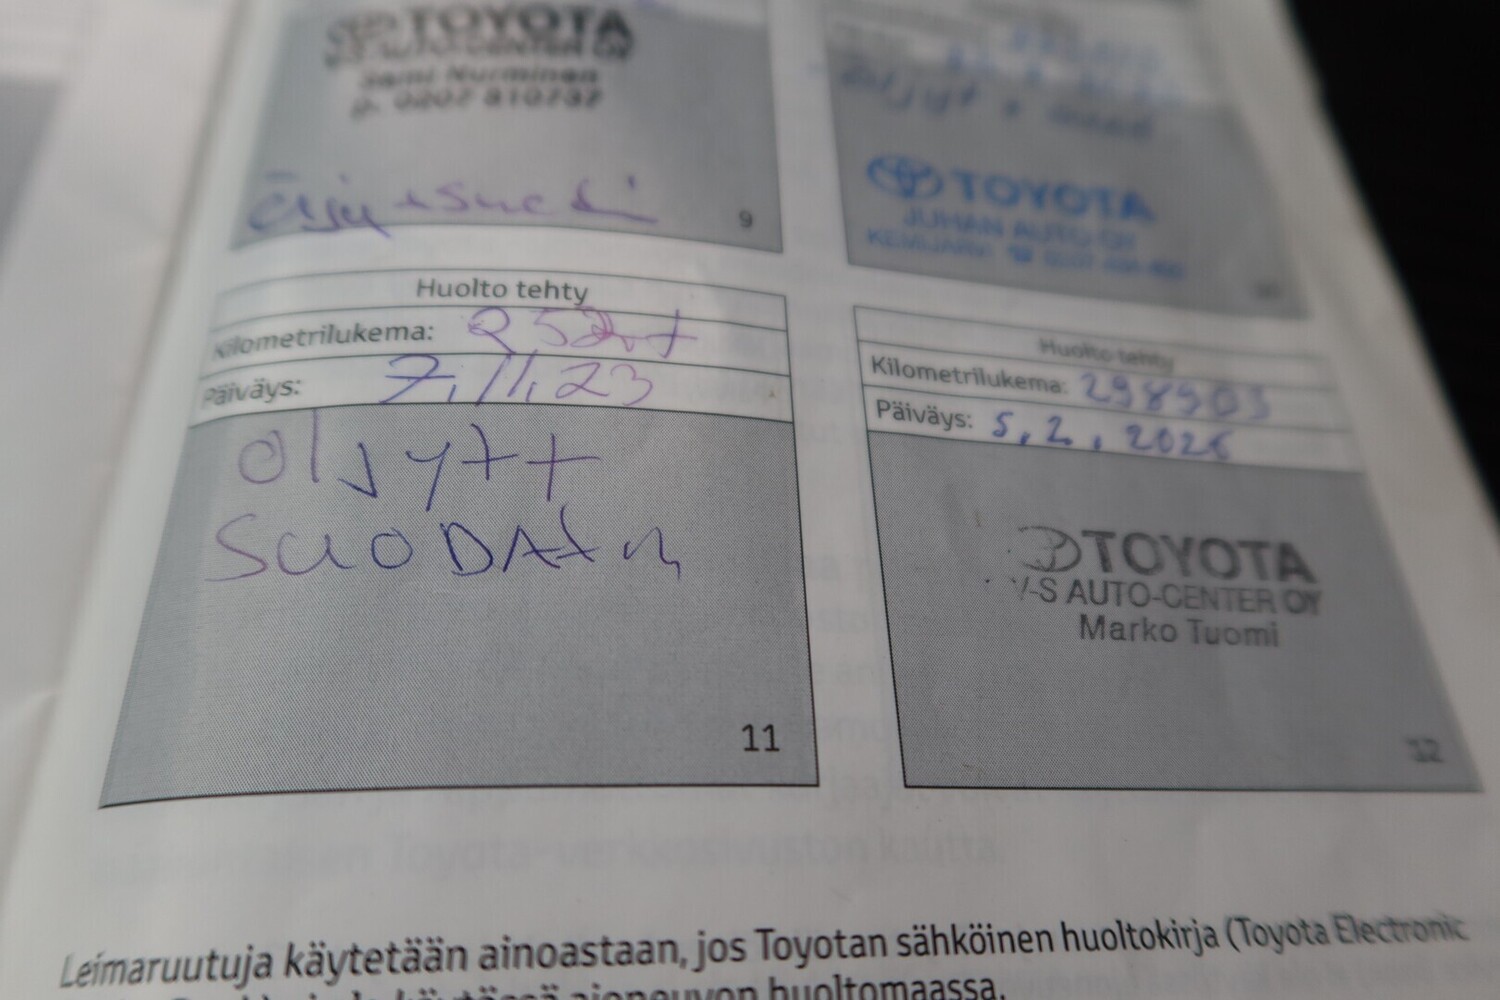 TOYOTA
V-S AUTO-CENTER OY
Sami Nurminen
p. 0207 810737
öljy + suodi
9
öljyt +
TOYOTA
JUHAN AUTO OY
KEMIJÄRVI
Huolto tehty
Kilometrilukema:
Päiväys: 7.11.23
öljyt +
SUODATIN
11
Huolto tehty
Kilometrilukema: 298903
Päiväys: 5.2.2026
TOYOTA
V-S AUTO-CENTER OY
Marko Tuomi
12
Toyota-verkkosivuston kautta.
Leimaruutuja käytetään ainoastaan, jos Toyotan sähköinen huoltokirja (Toyota Electronic
käytössä ajoneuvon huoltomaassa.